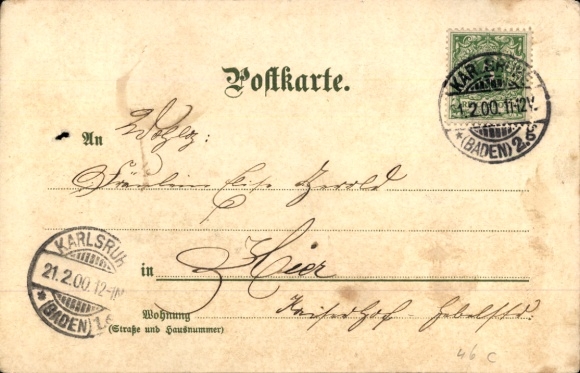 Postkarte.
KARLSRUHE
21.2.00. 11-12V.
*(BADEN) 2.g.
An Wohlg:
Fräulein Elise Herold
KARLSRUH
21.2.00. 12-1N
*(BADEN) 1.
in Hier
Wohnung Kaiserhof - Hebelstr:
(Straße und Hausnummer)
46 c